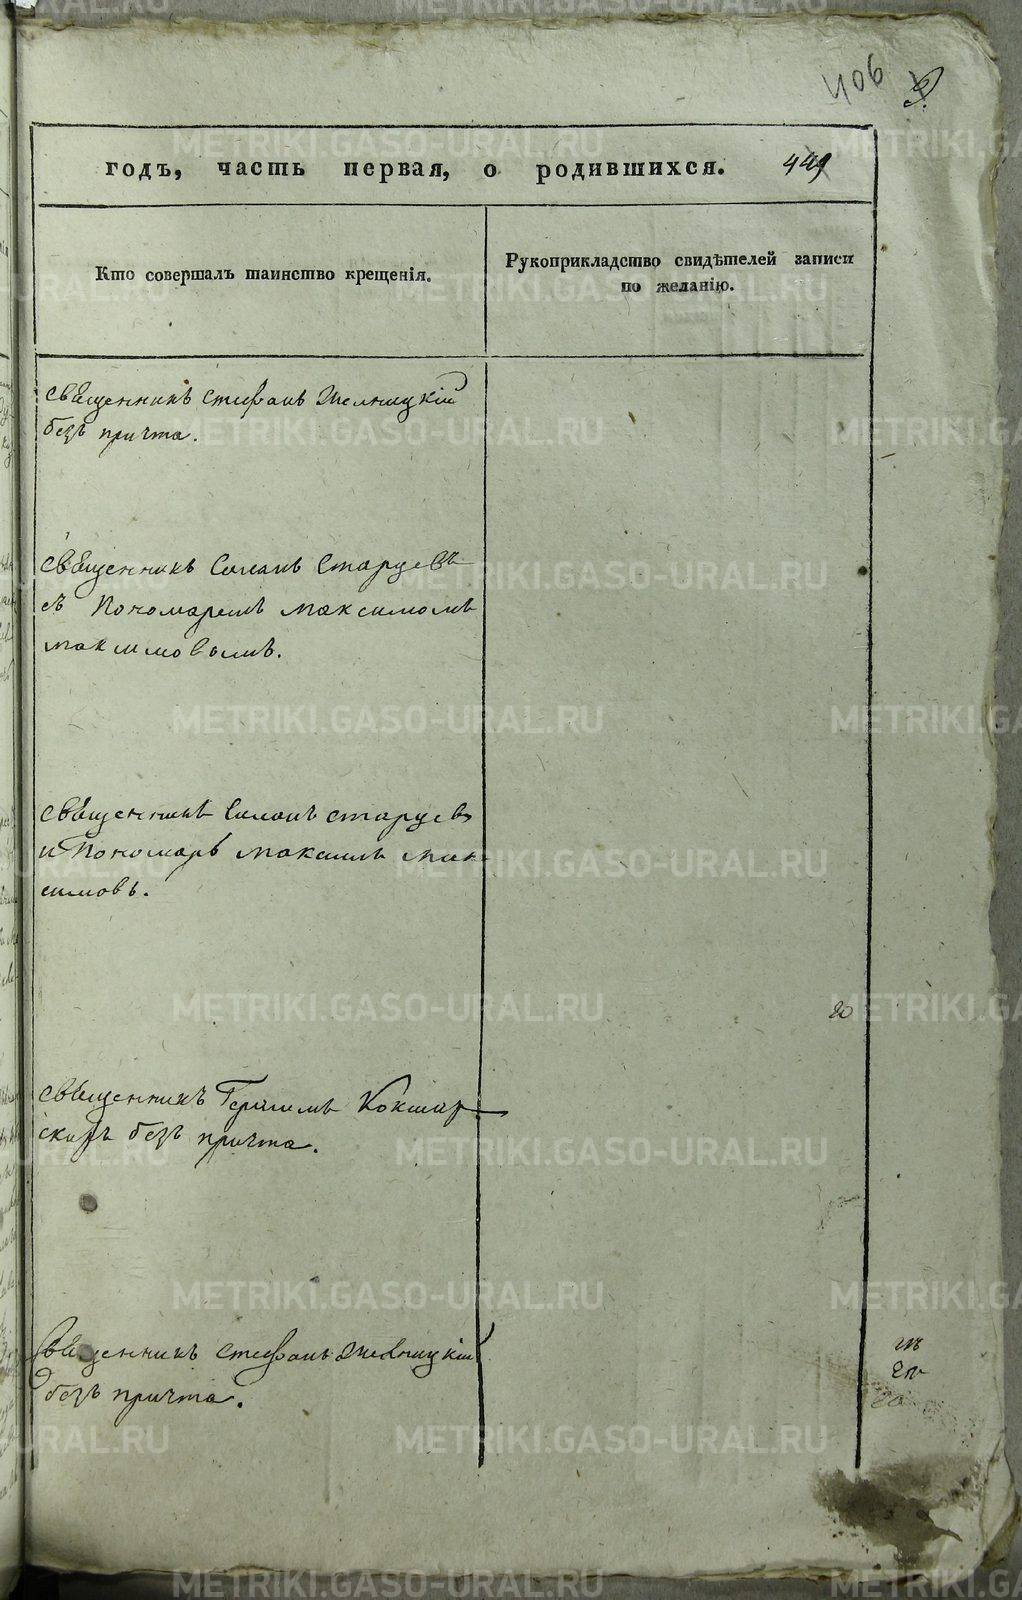 406
годъ, часть первая, о родившихся. 449
Кто совершалъ таинство крещенія.
Рукоприкладство свидѣтелей записи
по желанію.
священникъ стефанъ
безъ причта.
священникъ Симеонъ Старцевъ
съ Пономаремъ максимомъ
максимовымъ.
священникъ Симеонъ старцевъ
и Пономарь максимъ мак
симовъ.
20
священникъ Герасимъ Кокшар
скихъ безъ причта.
Священникъ стефанъ
безъ причта.
METRIKI.GASO-URAL.RU